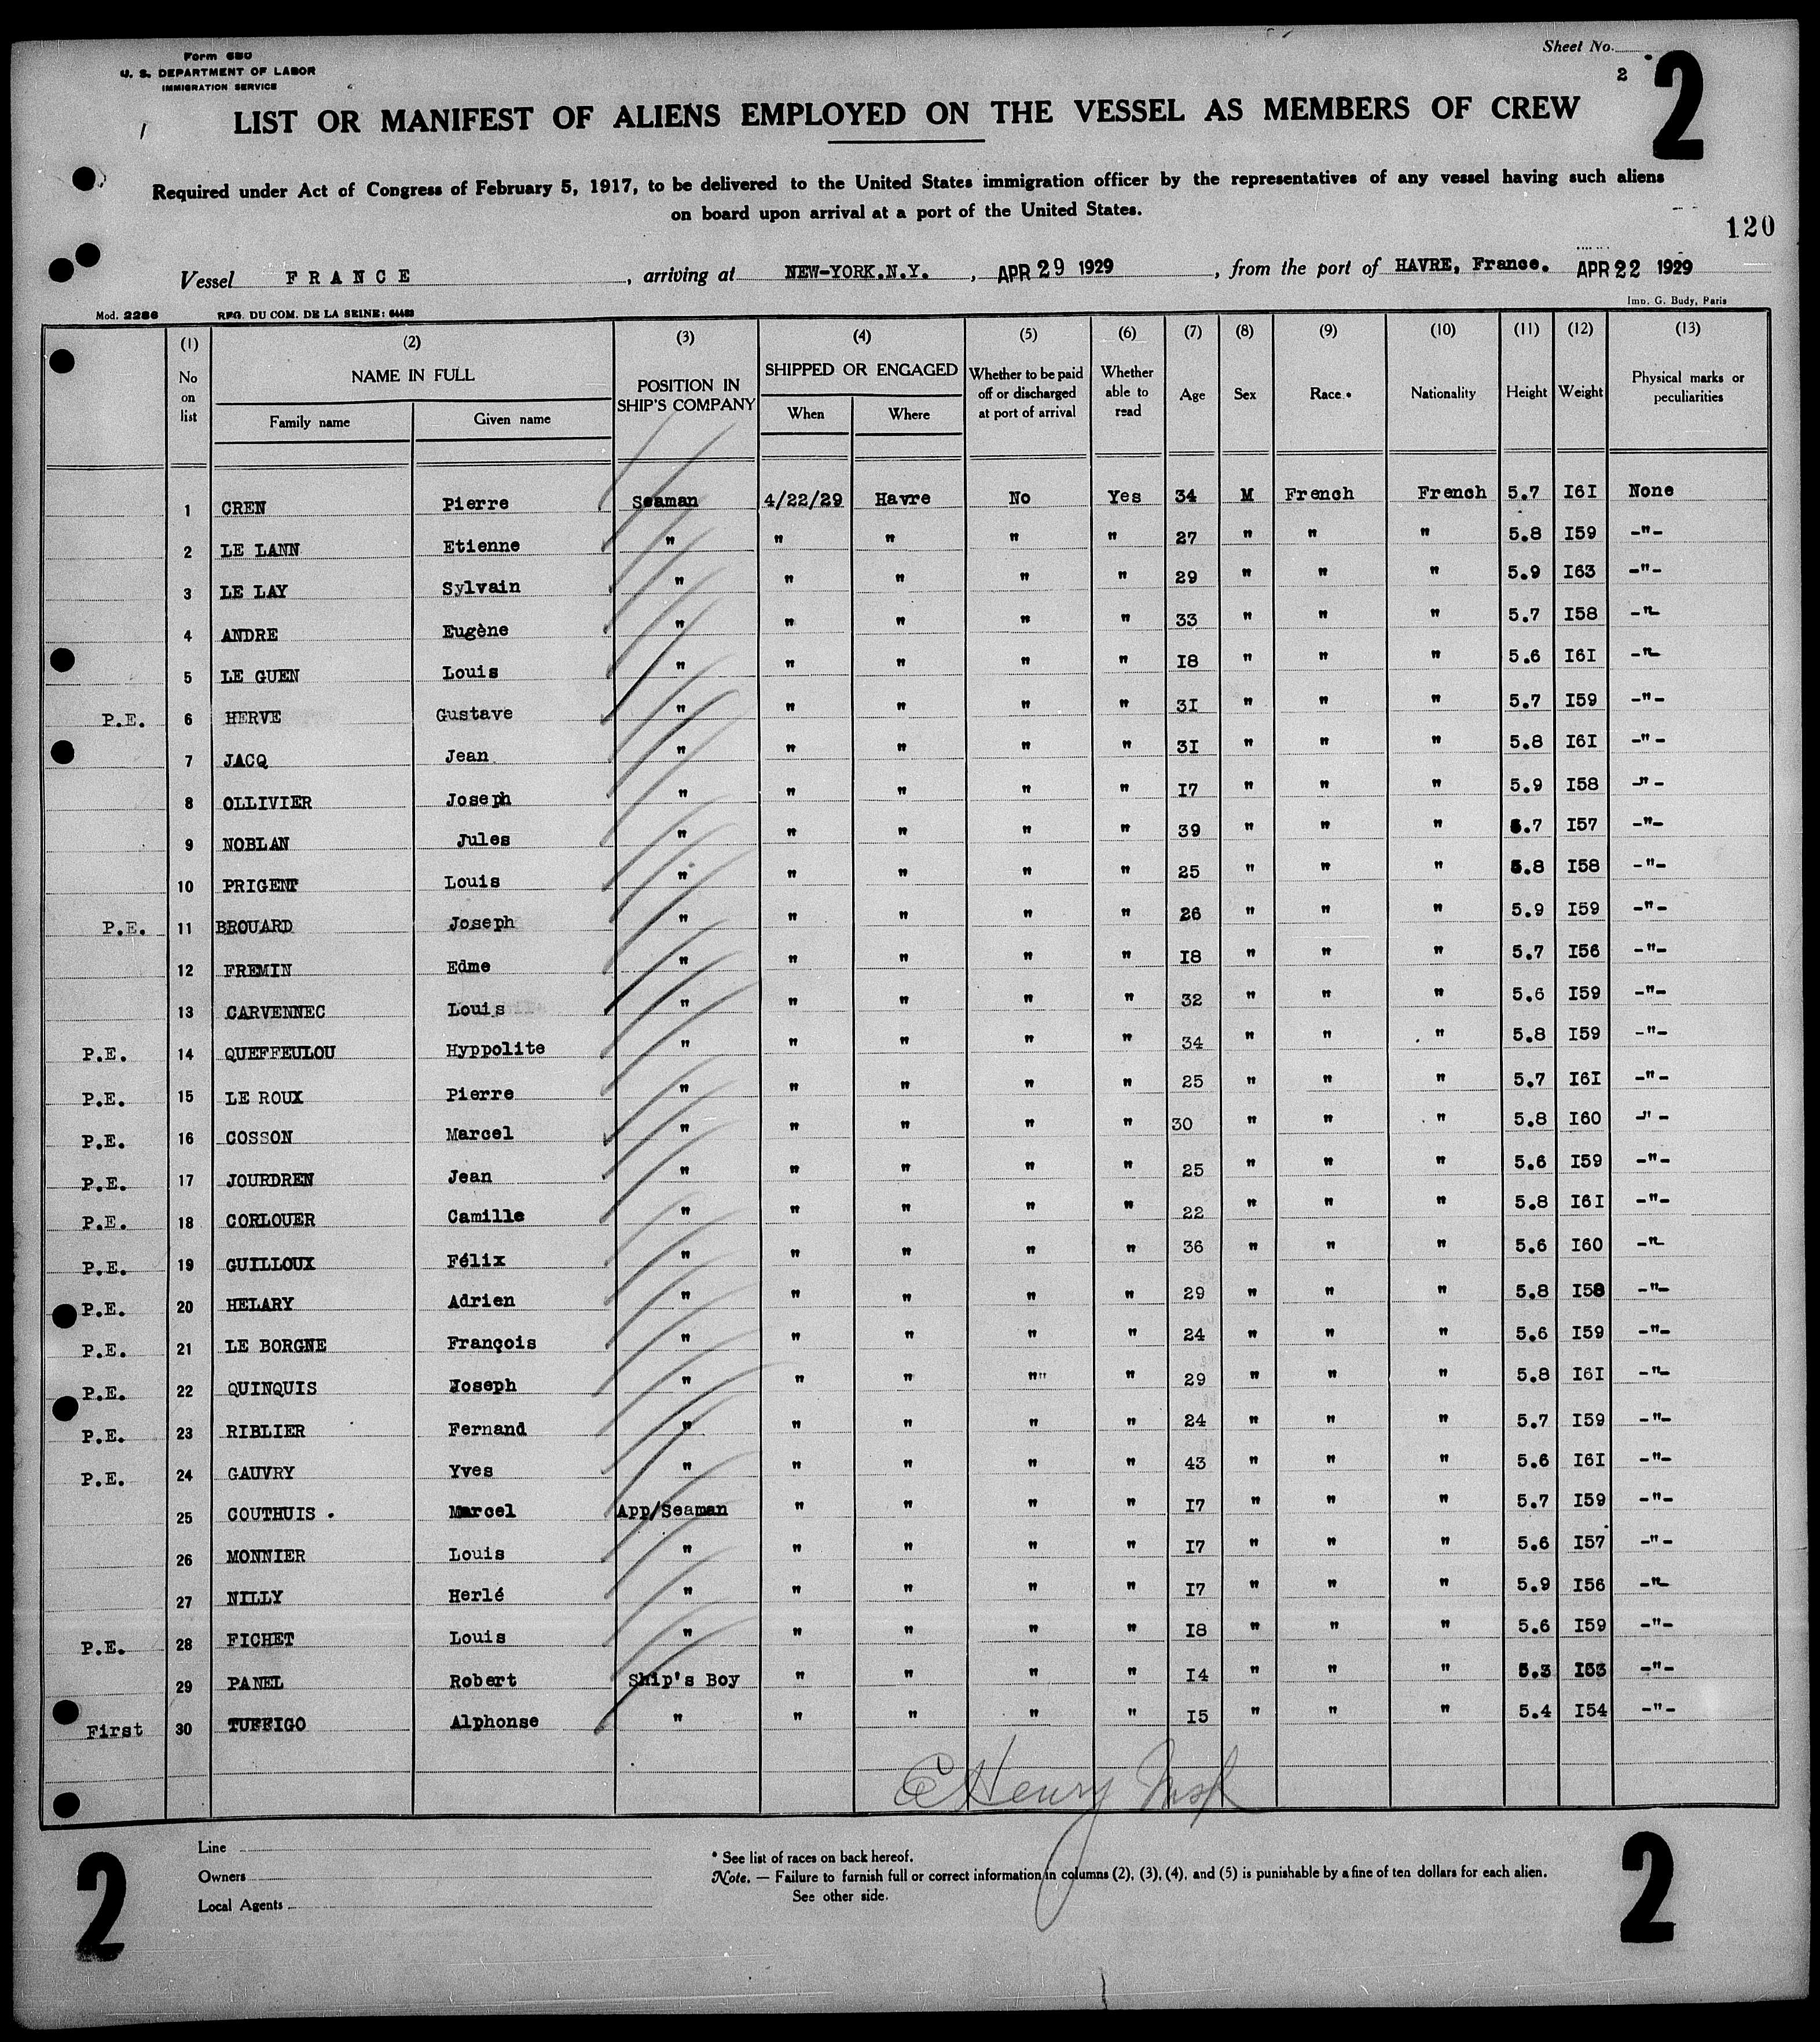 Form 680
U. S. DEPARTMENT OF LABOR
IMMIGRATION SERVICE
Sheet No.
2
2
LIST OR MANIFEST OF ALIENS EMPLOYED ON THE VESSEL AS MEMBERS OF CREW
Required under Act of Congress of February 5, 1917, to be delivered to the United States immigration officer by the representatives of any vessel having such aliens
on board upon arrival at a port of the United States.
120
Vessel FRANCE, arriving at NEW-YORK.N.Y., APR 29 1929, from the port of HAVRE, France. APR 22 1929
Mod. 2286 RFG. DU COM. DE LA SEINE: 64483 Imp. G. Budy, Paris
(1) (2) (3) (4) (5) (6) (7) (8) (9) (10) (11) (12) (13)
No on list NAME IN FULL Family name Given name POSITION IN SHIP'S COMPANY SHIPPED OR ENGAGED When Where Whether to be paid off or discharged at port of arrival Whether able to read Age Sex Race.* Nationality Height Weight Physical marks or peculiarities
1 CREN Pierre Seaman 4/22/29 Havre No Yes 34 M French French 5.7 I6I None
2 LE LANN Etienne " " " " " 27 " " " 5.8 I59 -"-
3 LE LAY Sylvain " " " " " 29 " " " 5.9 I63 -"-
4 ANDRE Eugène " " " " " 33 " " " 5.7 I58 -"-
5 LE GUEN Louis " " " " " I8 " " " 5.6 I6I -"-
P.E. 6 HERVE Gustave " " " " " 3I " " " 5.7 I59 -"-
7 JACQ Jean " " " " " 3I " " " 5.8 I6I -"-
8 OLLIVIER Joseph " " " " " I7 " " " 5.9 I58 -"-
9 NOBLAN Jules " " " " " 39 " " " 5.7 I57 -"-
10 PRIGENT Louis " " " " " 25 " " " 5.8 I58 -"-
P.E. 11 BROUARD Joseph " " " " " 26 " " " 5.9 I59 -"-
12 FREMIN Edme " " " " " I8 " " " 5.7 I56 -"-
13 CARVENNEC Louis " " " " " 32 " " " 5.6 I59 -"-
P.E. 14 QUEFFEULOU Hyppolite " " " " " 34 " " " 5.8 I59 -"-
P.E. 15 LE ROUX Pierre " " " " " 25 " " " 5.7 I6I -"-
P.E. 16 COSSON Marcel " " " " " 30 " " " 5.8 I60 -"-
P.E. 17 JOURDREN Jean " " " " " 25 " " " 5.6 I59 -"-
P.E. 18 CORLOUER Camille " " " " " 22 " " " 5.8 I6I -"-
P.E. 19 GUILLOUX Félix " " " " " 36 " " " 5.6 I60 -"-
P.E. 20 HELARY Adrien " " " " " 29 " " " 5.8 I58 -"-
P.E. 21 LE BORGNE François " " " " " 24 " " " 5.6 I59 -"-
P.E. 22 QUINQUIS Joseph " " " "" " 29 " " " 5.8 I6I -"-
P.E. 23 RIBLIER Fernand " " " " " 24 " " " 5.7 I59 -"-
P.E. 24 GAUVRY Yves " " " " " 43 " " " 5.6 I6I -"-
25 COUTHUIS . Marcel App/Seaman " " " " I7 " " " 5.7 I59 -"-
26 MONNIER Louis " " " " " I7 " " " 5.6 I57 -"-
27 NILLY Herlé " " " " " I7 " " " 5.9 I56 -"-
P.E. 28 FICHET Louis " " " " " I8 " " " 5.6 I59 -"-
29 PANEL Robert Ship's Boy " " " " I4 " " " 5.3 I53 -"-
First 30 TUFFIGO Alphonse " " " " " I5 " " " 5.4 I54 -"-
E Henry Insp
Line
Owners
Local Agents
* See list of races on back hereof.
Note. — Failure to furnish full or correct information in columns (2), (3), (4), and (5) is punishable by a fine of ten dollars for each alien.
See other side.
2
2